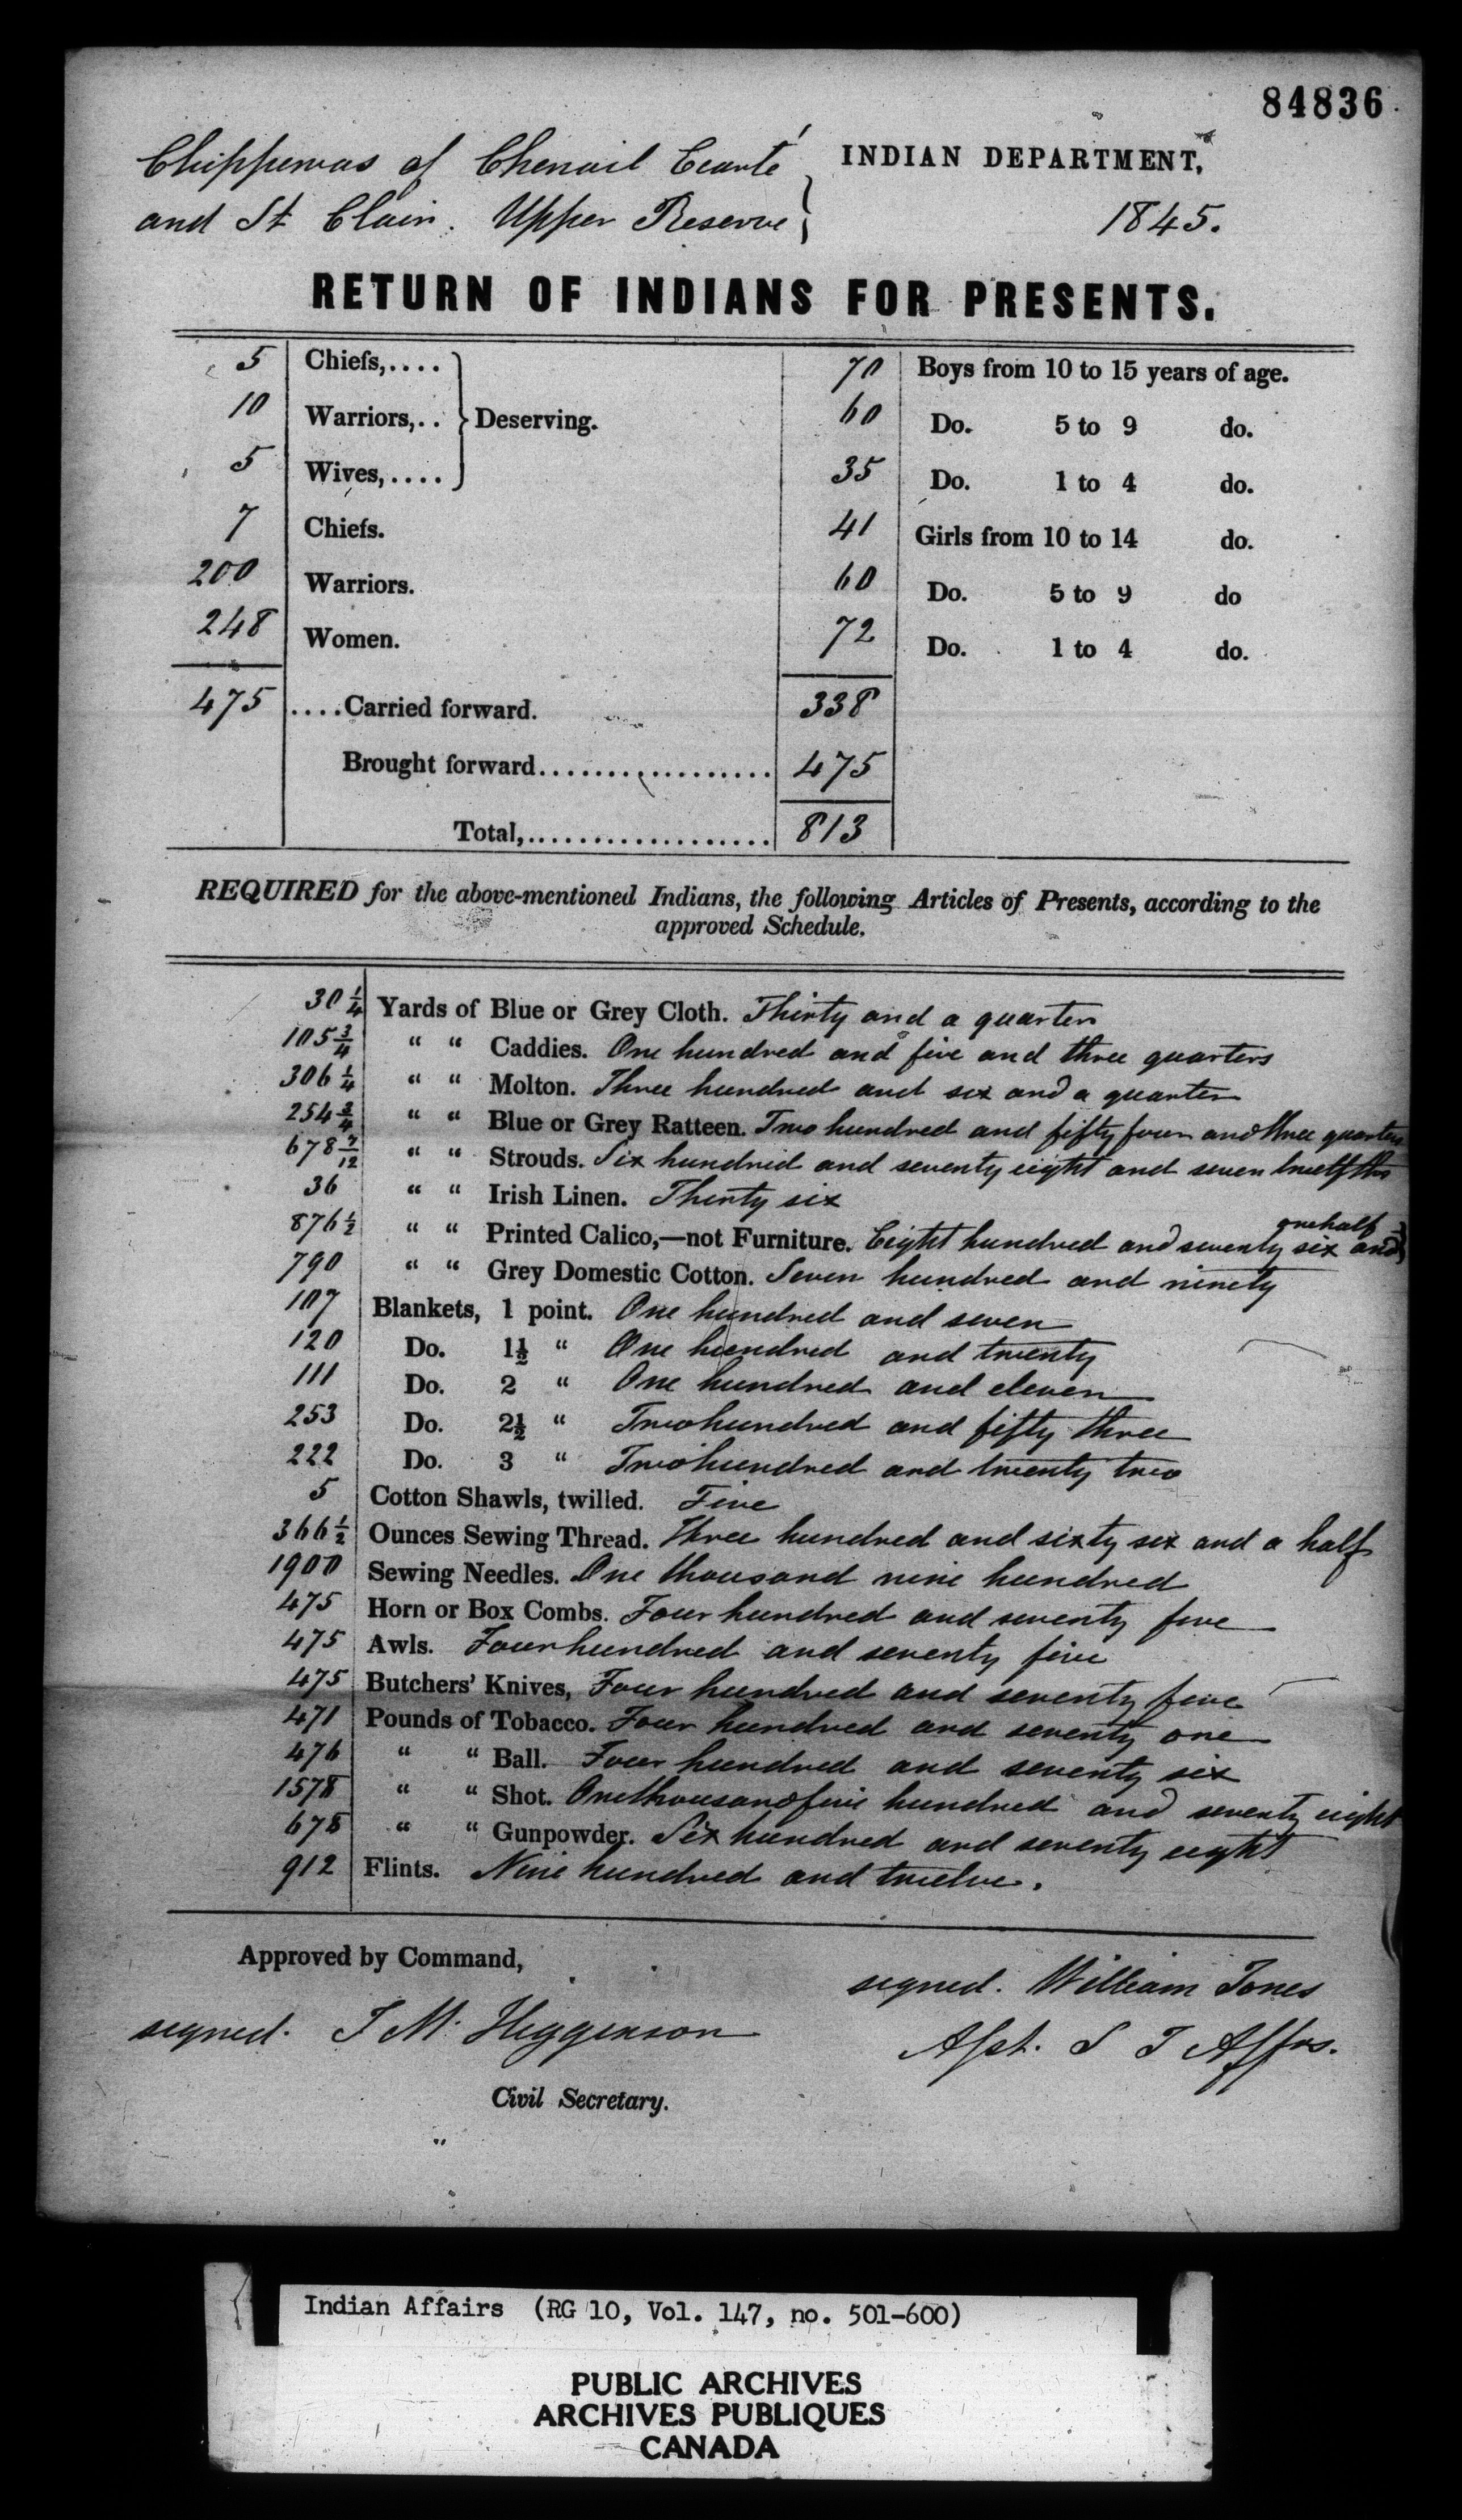 84836
Chippewas of Chenail Ecarté } INDIAN DEPARTMENT,
and St Clair. Upper Reserve } 1845.
RETURN OF INDIANS FOR PRESENTS.
5 Chiefs,.... 70 Boys from 10 to 15 years of age.
10 Warriors,.. } Deserving. 60 Do. 5 to 9 do.
5 Wives,.... 35 Do. 1 to 4 do.
7 Chiefs. 41 Girls from 10 to 14 do.
200 Warriors. 60 Do. 5 to 9 do
248 Women. 72 Do. 1 to 4 do.
475 ....Carried forward. 338
Brought forward.................. 475
Total,................... 813
REQUIRED for the above-mentioned Indians, the following Articles of Presents, according to the
approved Schedule.
30 1/4 Yards of Blue or Grey Cloth. Thirty and a quarter
105 3/4 " " Caddies. One hundred and five and three quarters
306 1/4 " " Molton. Three hundred and six and a quarter
254 3/4 " " Blue or Grey Ratteen. Two hundred and fifty four and three quarters
678 7/12 " " Strouds. Six hundred and seventy eight and seven twelfths
36 " " Irish Linen. Thirty six
876 1/2 " " Printed Calico,—not Furniture. Eight hundred and seventy six and } one half
790 " " Grey Domestic Cotton. Seven hundred and ninety
107 Blankets, 1 point. One hundred and seven
120 Do. 1½ " One hundred and twenty
111 Do. 2 " One hundred and eleven
253 Do. 2½ " Two hundred and fifty three
222 Do. 3 " Two hundred and twenty two
5 Cotton Shawls, twilled. Five
366 1/2 Ounces Sewing Thread. Three hundred and sixty six and a half
1900 Sewing Needles. One thousand nine hundred
475 Horn or Box Combs. Four hundred and seventy five
475 Awls. Four hundred and seventy five
475 Butchers' Knives, Four hundred and seventy five
471 Pounds of Tobacco. Four hundred and seventy one
476 " " Ball. Four hundred and seventy six
1578 " " Shot. One thousand five hundred and seventy eight
678 " " Gunpowder. Six hundred and seventy eight
912 Flints. Nine hundred and twelve.
Approved by Command,
signed. William Jones
signed. J M. Higginson
Asst. S I Affrs.
Civil Secretary.
Indian Affairs (RG 10, Vol. 147, no. 501-600)
PUBLIC ARCHIVES
ARCHIVES PUBLIQUES
CANADA